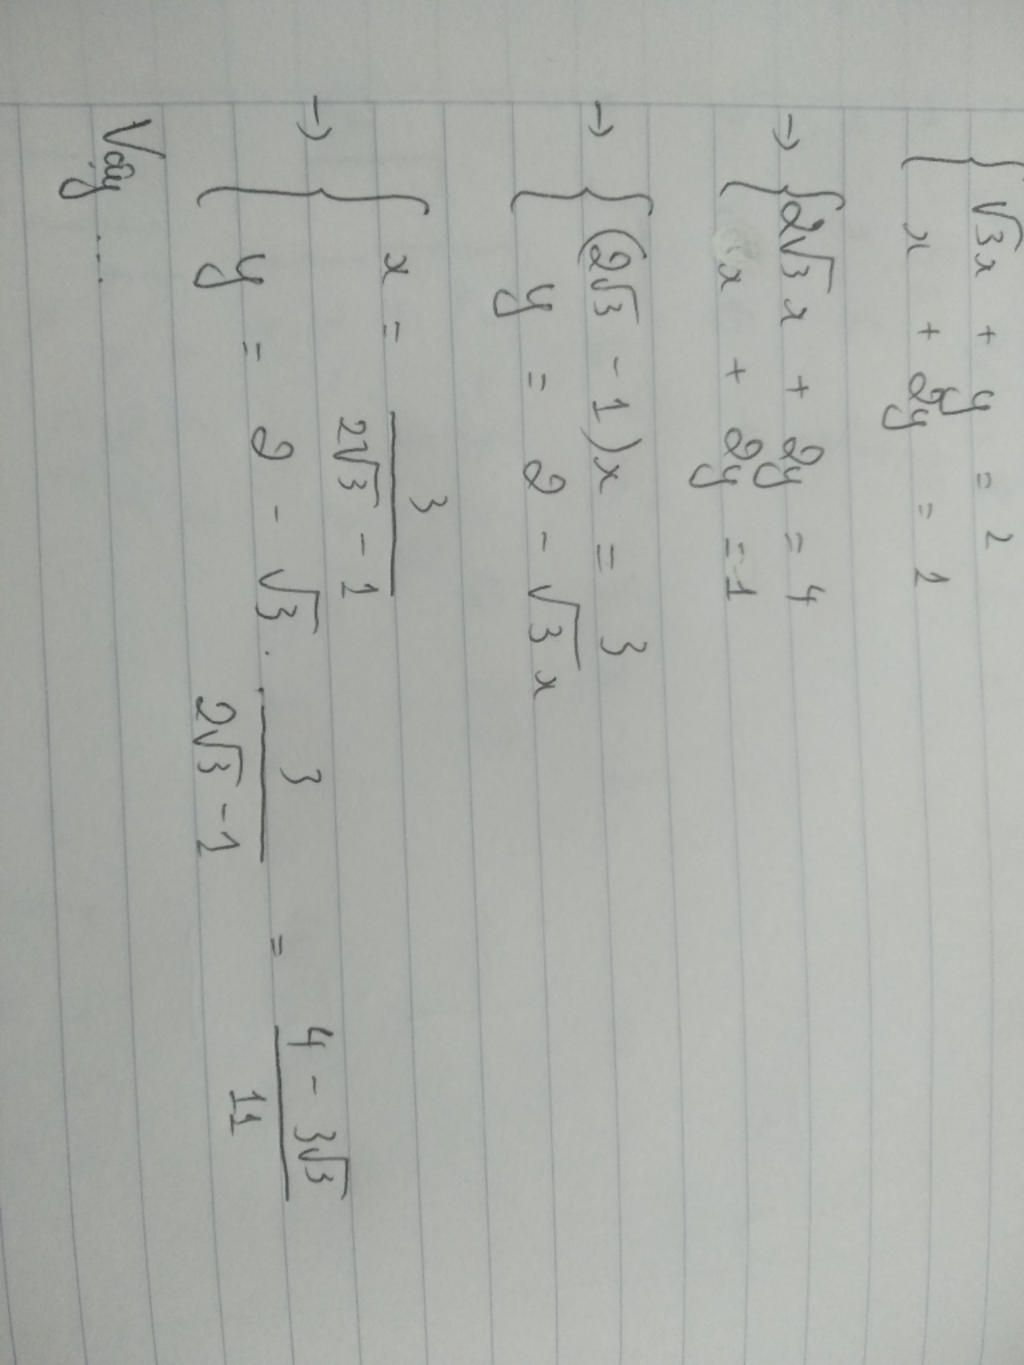 { √3x + y = 2
x + 2y = 1
→ { 2√3x + 2y = 4
x + 2y = 1
→ { (2√3 - 1)x = 3
y = 2 - √3x
→ { x = 3/(2√3 - 1)
y = 2 - √3 . 3/(2√3 - 1) = (4 - 3√3)/11
Vậy ...